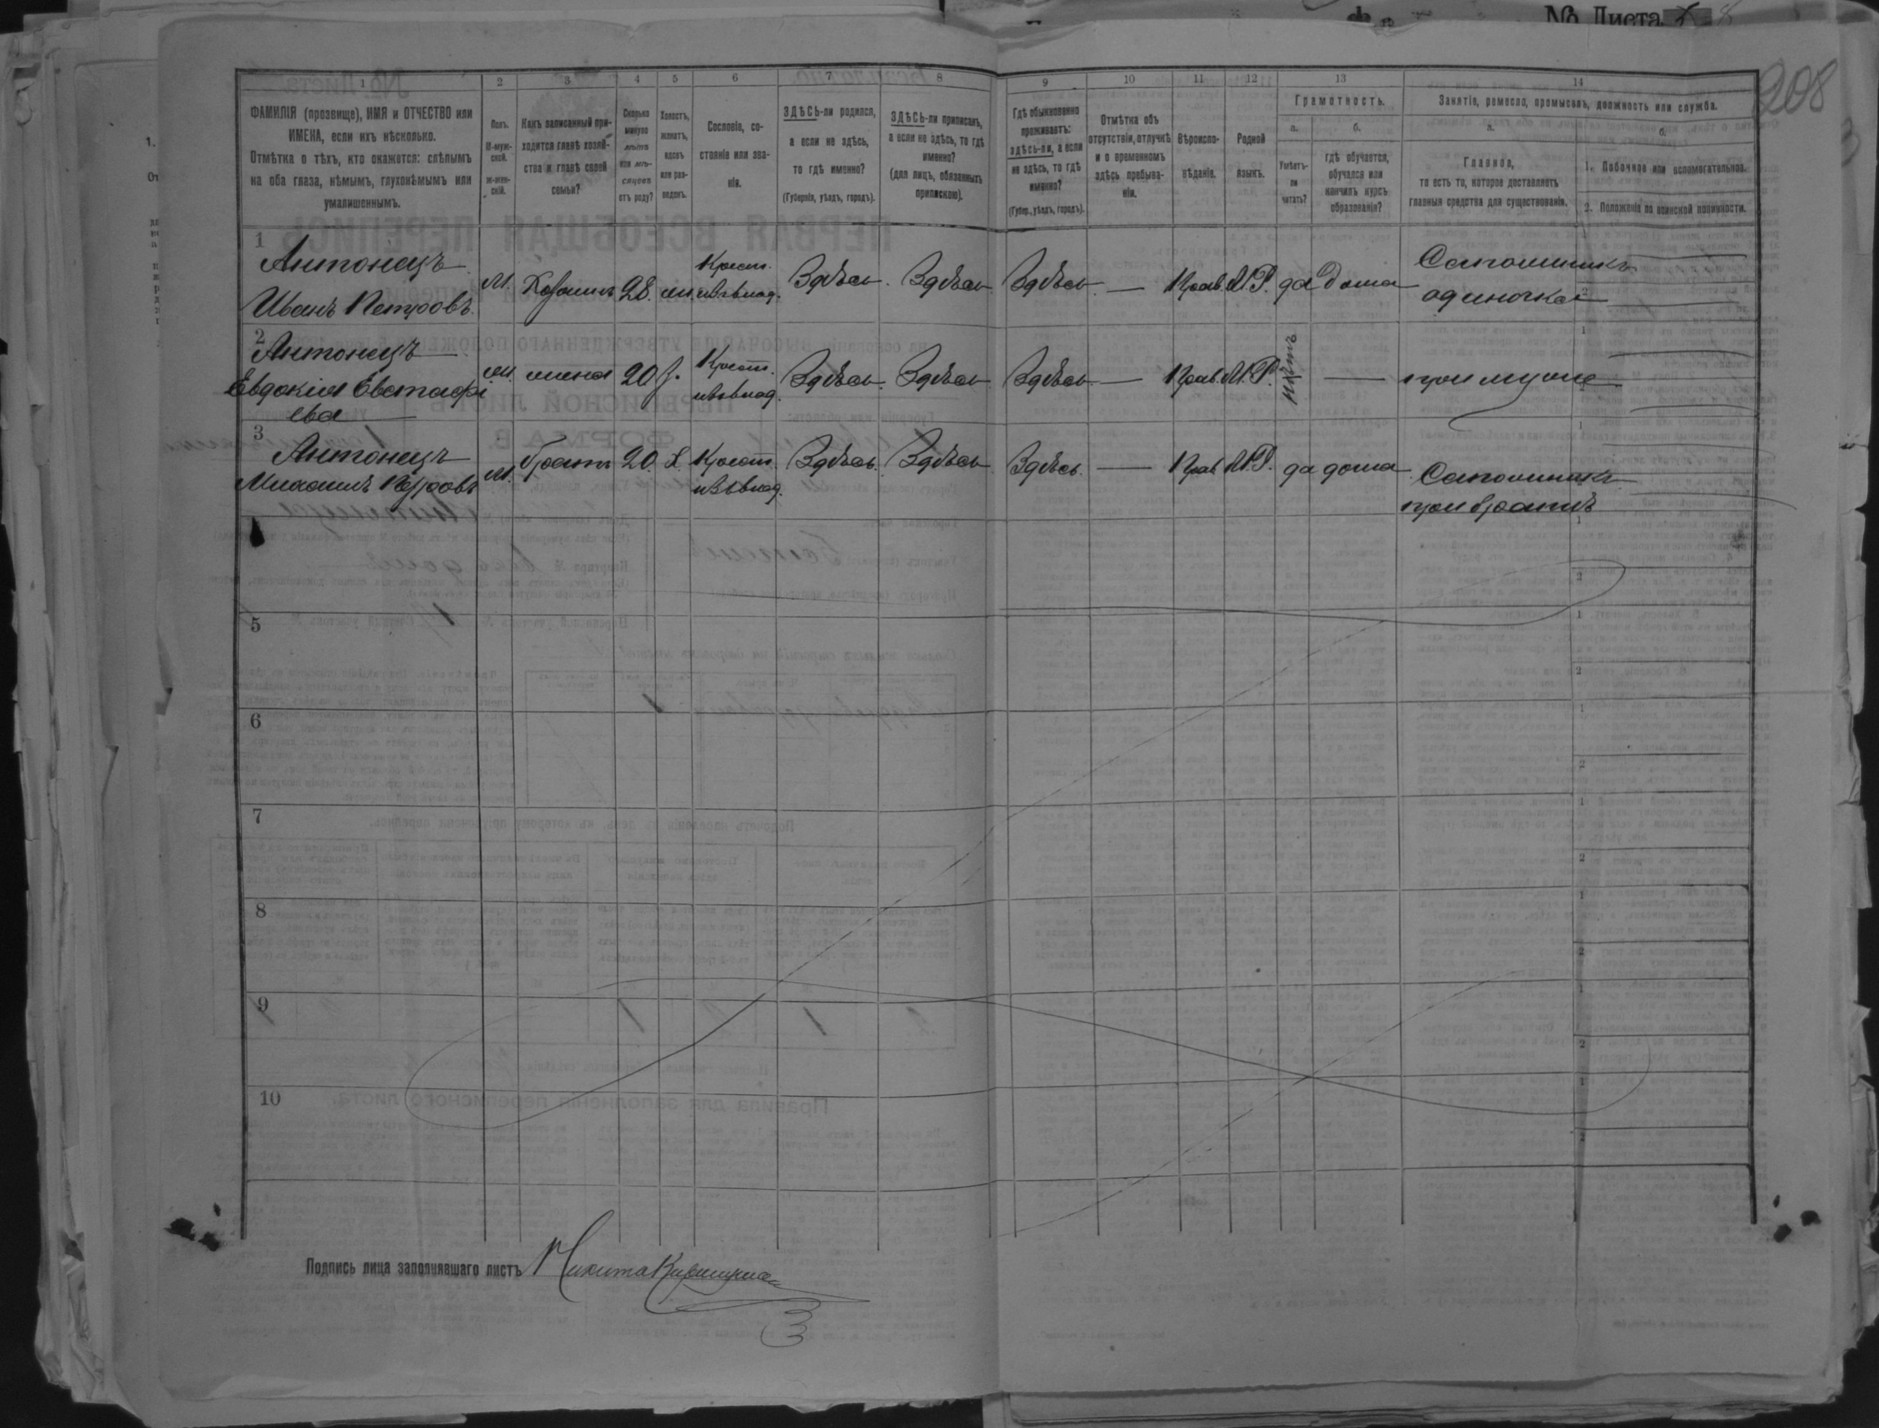 № Листа
208
1 2 3 4 5 6 7 8 9 10 11 12 13 14
ФАМИЛІЯ (прозвище), ИМЯ и ОТЧЕСТВО или
ИМЕНА, если ихъ нѣсколько.
Отмѣтка о тѣхъ, кто окажется: слѣпымъ
на оба глаза, нѣмымъ, глухонѣмымъ или
умалишеннымъ.
Полъ.
М-муж-
ской.
ж-жен-
скій.
Какъ записанный при-
ходится главѣ хозяй-
ства и главѣ своей
семьи?
Сколько
минуло
лѣтъ
или мѣ-
сяцевъ
отъ роду?
Холостъ,
женатъ,
вдовъ
или раз-
веденъ.
Сословіе, со-
стояніе или зва-
ніе.
ЗДѢСЬ-ли родился,
а если не здѣсь,
то гдѣ именно?
(Губернія, уѣздъ, городъ).
ЗДѢСЬ-ли приписанъ,
а если не здѣсь, то гдѣ
именно?
(для лицъ, обязанныхъ
припискою).
Гдѣ обыкновенно
проживаетъ:
здѣсь-ли, а если
не здѣсь, то гдѣ
именно?
(Губерн., уѣздъ, городъ).
Отмѣтка объ
отсутствіи, отлучкѣ
и о временномъ
здѣсь пребыва-
ніи.
Вѣроиспо-
вѣданіе.
Родной
языкъ.
Грамотность.
а.
Умѣетъ-
ли
читать?
б.
гдѣ обучается,
обучался или
кончилъ курсъ
образованія?
Занятіе, ремесло, промыселъ, должность или служба.
а.
Главное,
то есть то, которое доставляетъ
главныя средства для существованія.
б.
1. Побочное или вспомогательное.
2. Положеніе по воинской повинности.
1
Антонецъ
Иванъ Петровъ
М. Хозяинъ 28. жен. Крест. изъ влад. Здѣсь. Здѣсь Здѣсь — Прав. М.Р. да дома
Сапожникъ
одиночка
2
Антонецъ
Евдокія Евстафі
ева
жен. жена 20 з. Крест. изъ влад. Здѣсь. Здѣсь Здѣсь — Прав. М.Р. нѣтъ — при мужѣ
3
Антонецъ
Михаилъ Петровъ
М. братъ 20. Х. Крест. изъ влад. Здѣсь. Здѣсь Здѣсь. — Прав М.Р. да дома
Сапожникъ
при братѣ
5
6
7
8
9
10
Подпись лица заполнявшаго листъ Никита